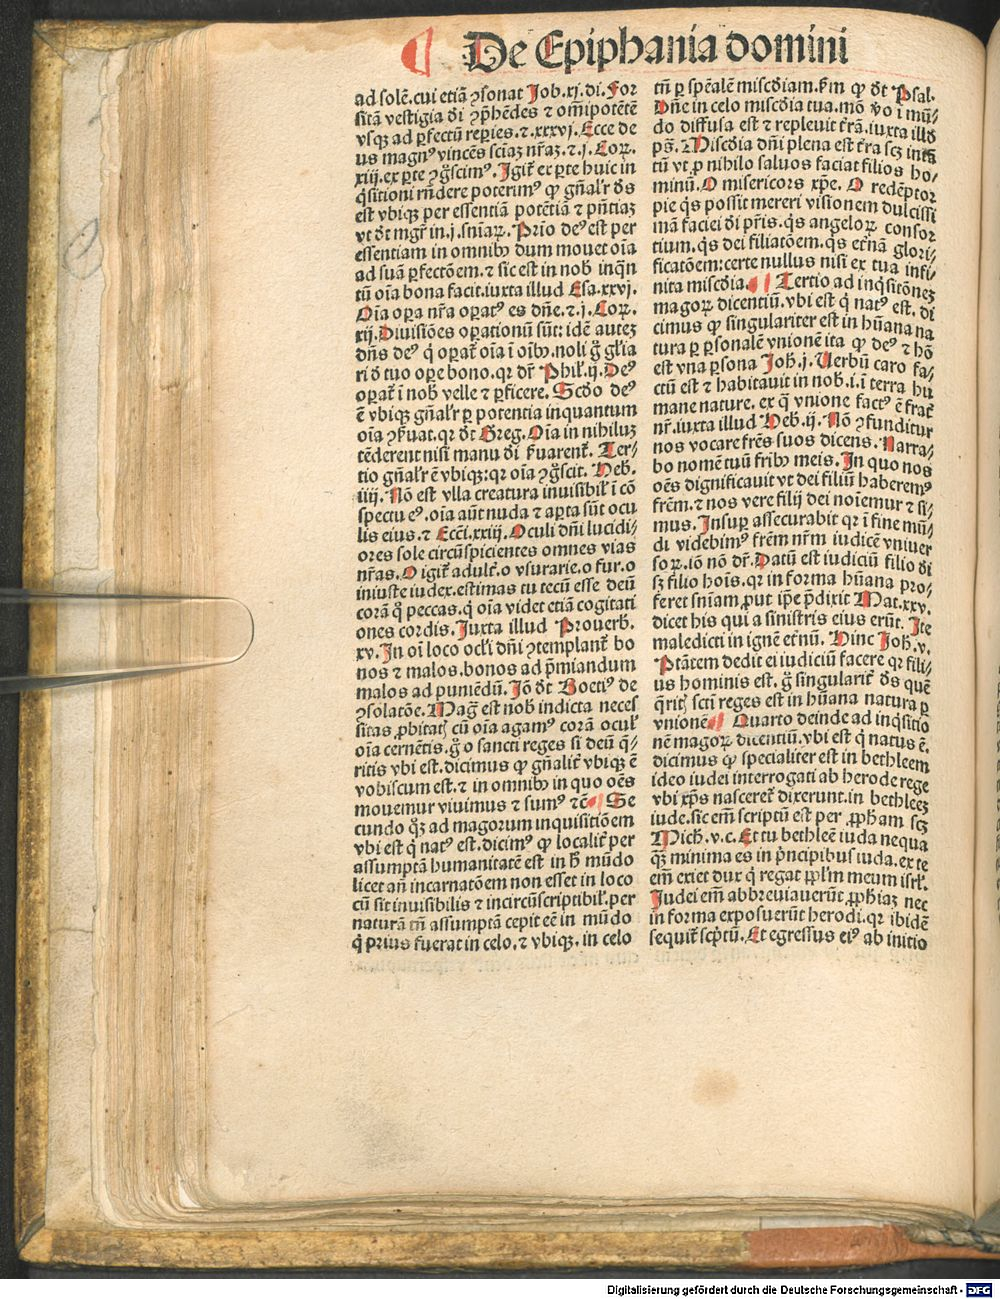 De Epiphania domini
ad solē. cui etiā ꝯsonat Job. xj. di. For
sitā vestigia dī ꝯp̄hēdes ⁊ om̄ipotētē
vsqꝫ ad ꝑfectū repies. ⁊. xxxvj. Ecce de
us magnꝰ vincēs sciaꝫ nr̄aꝫ. ⁊. j. Coꝝ.
xiij. ex ꝑte ꝯg̃scimꝰ. Igit̃ ex ꝑte huic in
q̄sitioni rn̄dere poterimꝰ ꝙ gn̄al'r ds̄
est vbiqꝫ per essentiā potētiā ⁊ pn̄tiaꝫ
vt dt̄ mgr̄ in. j. sniaꝝ. Prio deꝰ est per
essentiam in omnibꝰ dum mouet oīa
ad suā ꝑfectōem. ⁊ sic est in nob̄ inq̄n
tū oīa bona facit. iuxta illud Esa. xxvj.
Oīa oꝑa nr̄a oꝑatꝰ es dn̄e. ⁊. j. Coꝝ.
xij. Diuisiōes oꝑationū sūt: idē auteꝫ
dn̄s deꝰ q̇ oꝑat̃ oīa ī oībꝰ. noli g̃ gl'ia
ri d̄ tuo oꝑe bono. qꝛ dr̄ Phil'. ij. Deꝰ
oꝑat̃ ī nob̄ velle ⁊ ꝑficere. Scd̄o deꝰ
ē vbiqꝫ gn̄al'r ꝑ potentia inquantum
oīa ꝯp̄uat. qꝛ dt̄ Greg. Oīa in nihiluꝫ
tēderent nisi manu dī p̄uarent̃. Ter⸗
tio gn̄al'r ē vbiqꝫ: qꝛ oīa ꝯg̃scit. Heb.
iiij. Nō est vlla creatura inuisibil' ī cō
spectu eꝰ. oīa aūt nuda ⁊ aꝑta sūt ocu
lis eius. ⁊ Ecci. xxiij. Oculi dn̄i lucidi⸗
ores sole circūspicientes omnes vias
nr̄as. O igit̃ adult̃. o vsurarie. o fur. o
iniuste iudex. estimas tu tecū esse deū
corā q̇ peccas. q̇ oīa videt etiā cogitati
ones cordis. Juxta illud Prouerb̄.
xv. In oī loco ocl'i dn̄i ꝯtemplant̃ bo
nos ⁊ malos. bonos ad p̄miandum
malos ad puniēdū. Jō dt̄ Boetiꝰ de
ꝯsolatōe. Mag̃ est nob̄ indicta neces
sitas ꝓbitatꝭ cū oīa agamꝰ corā ocul'
oīa cernētis. g̃ o sancti reges si deū q̄⸗
ritis vbi est. dicimus ꝙ gn̄alit̃ vbiqꝫ ē
vobiscum est. ⁊ in omnibꝰ in quo oēs
mouemur viuimus ⁊ sumꝰ ⁊cē Se
cundo qꝫ ad magorum inquisitiōem
vbi est q̇ natꝰ est. dicimꝰ ꝙ localit̃ per
assumptā humanitatē est in h̄ mūdo
licet an̄ incarnatōem non esset in loco
cū sit inuisibilis ⁊ incircūscriptibil'. per
naturā tn̄ assumptā cepit eē in mūdo
q̇ prius fuerat in celo. ⁊ vbiqꝫ. in celo
tn̄ ꝑ sp̄ealē misc̄diam. p̄m ꝙ dt̄ Psal.
Dn̄e in celo misc̄dia tua. mō v̄o ī mū⸗
do diffusa est ⁊ repleuit tr̄ā. iuxta illd̄
ps̄. Misc̄dia dn̄i plena est tr̄a scꝫ intā
tū vt ꝓ nihilo saluos faciat filios ho⸗
minū. O misericors xp̄e. O redēptor
pie q̇s possit mereri visionem dulcissi
mā faciei dī pr̄is. q̇s angeloꝝ consor
tium. q̇s dei filiatōem. q̇s et̄nā glori⸗
ficatōem: certe nullus nisi ex tua infi⸗
nita misc̄dia. Tertio ad inq̇sitōneꝫ
magoꝝ dicentiū. vbi est q̇ natꝰ est. di
cimus ꝙ singulariter est in hūana na
tura ꝑ ꝑsonalē vnionē ita ꝙ deꝰ ⁊ hō
est vna ꝑsona Joh̄. j. Verbū caro fa⸗
ctū est ⁊ habitauit in nob̄. i. ī terra hu
mane nature. ex q̇ vnione factꝰ ē frat̃
nr̄. iuxta illud Heb. ij. Nō ꝯfunditur
nos vocare frēs suos dicens. Narra⸗
bo nomē tuū frībꝰ meis. In quo nos
oēs dignificauit vt dei filiū haberemꝰ
frēm. ⁊ nos vere filij dei noīemur ⁊ si⸗
mus. Insuꝑ assecurabit qꝛ ī fine mū⸗
di videbimꝰ frēm nr̄m iudicē vniuer
soꝝ. iō nō dr̄. Datū est iudiciū filio dī
sꝫ filio hoīs. qꝛ in forma hūana pro⸗
feret sn̄iam ꝓut ip̄e p̄dixit Mat. xxv.
dicet his qui a sinistris eius erūt. Ite
maledicti in ignē et̄nū. Hinc Joh̄. v.
Ptātem dedit ei iudiciū facere qꝛ fili⸗
us hominis est. g̃ singularit̃ ds̄ quē
q̄ritꝭ scti reges est in hūana natura ꝑ
vnionē Quarto deinde ad inq̇sitio
nē magoꝝ dicentiū. vbi est q̇ natus ē.
dicimus ꝙ specialiter est in bethleem
ideo iudei interrogati ab herode rege
vbi xp̄s nasceret̃ dixerunt. in bethleeꝫ
iude. sic em̄ scriptū est per ꝓph̄am scꝫ
Mich̄. v. c. Et tu bethleē iuda nequa
qꝫ minima es in ṗncipibus iuda. ex te
em̄ exiet dux q̇ regat ppl'm meum isrl'.
Judei em̄ abbreuiauerūt ꝓph̄iaꝫ nec
in forma exposuerūt herodi. qꝛ ibidē
sequit̃ sċptū. Et egressus eiꝰ ab initio
Digitalisierung gefördert durch die Deutsche Forschungsgemeinschaft - DFG